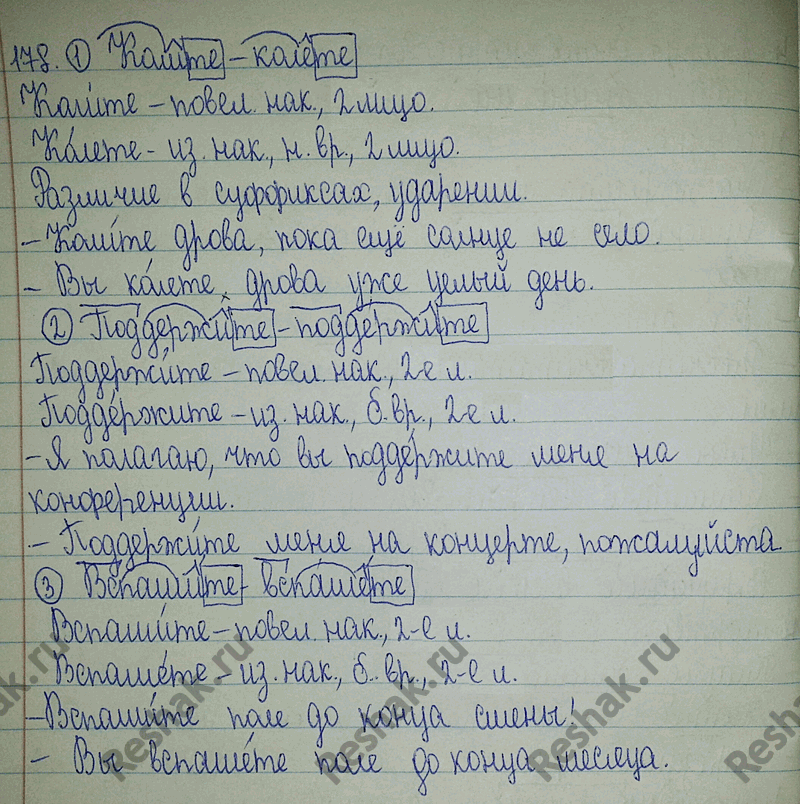 178. ① Коли́те – ко́лете
Коли́те – повел. нак., 2 лицо.
Ко́лете – из. нак., н. вр., 2 лицо.
Различие в суффиксах, ударении.
– Коли́те дрова, пока ещё солнце не село.
– Вы ко́лете дрова уже целый день.
② Поддержи́те – подде́ржите
Поддержи́те – повел. нак., 2-е л.
Подде́ржите – из. нак., б. вр., 2-е л.
– Я полагаю, что вы подде́ржите меня на
конференции.
– Поддержи́те меня на концерте, пожалуйста.
③ Вспаши́те – вспа́шете
Вспаши́те – повел. нак., 2-е л.
Вспаше́те – из. нак., б. вр., 2-е л.
– Вспаши́те поле до конца смены!
– Вы вспаше́те поле до конца месяца.
Reshak.ru
Reshak.ru
Reshak.ru
Reshak.ru
Reshak.ru